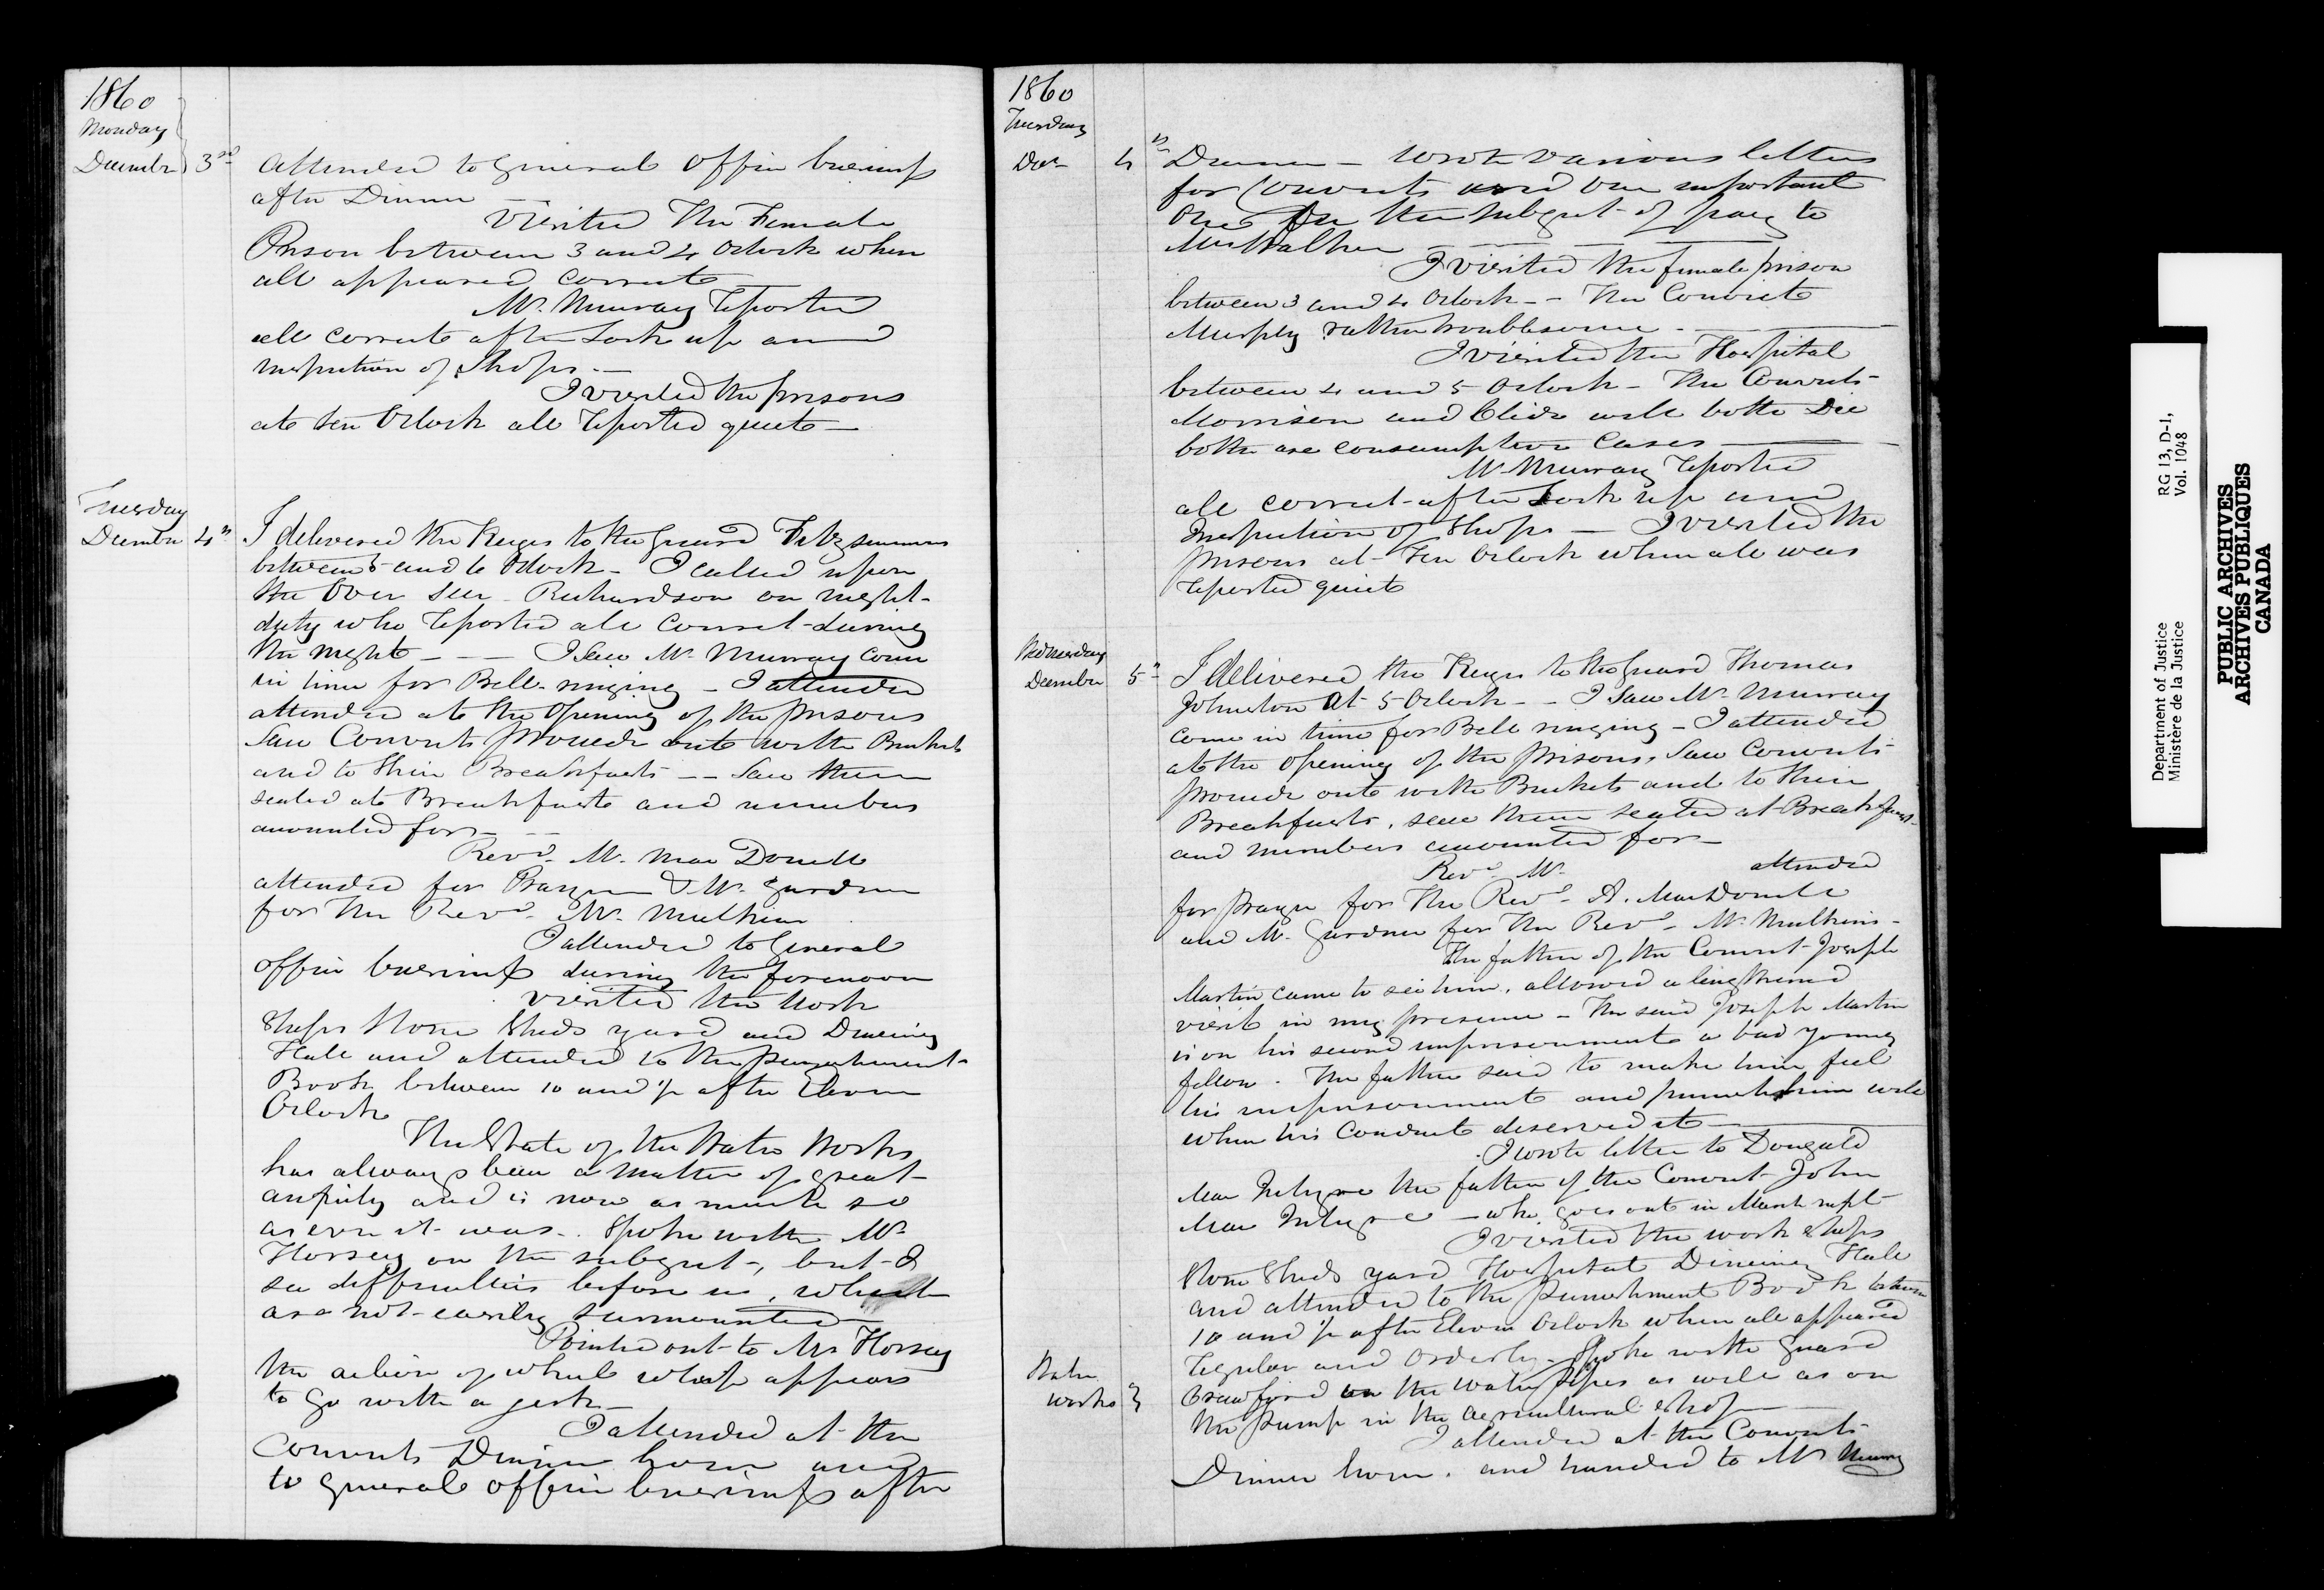 1860
Monday
December 3rd Attended to General Office business
after Dinner —
Visited The Female
Prison between 3 and 4 Oclock when
all appeared correct
Mr. Murray reported
all correct after Lock up and
inspection of Shops —
I visited the prisons
at ten Oclock all reported quiet —
Tuesday
December 4th I delivered the Keys to the Guard Fitzsimmons
between 5 and 6 Oclock - I called upon
the Over Seer Richardson on night
duty who reported all correct during
the night — — I Saw Mr. Murray come
in time for Bell-ringing - I attended
attended at the Opening of the prisons
Saw Convicts proceede out with Buckets
and to their Breakfasts -- Saw them
seated at Breakfast and numbers
accounted for — —
Revd. Mr. Mac Donell
attended for Prayer & Mr. Gardner
for the Revd. Mr. Mulkins
I attended to General
office business during the forenoon
visited the Work
Shops Stone Sheds yard and Dineing
Hall and attended to the punishment
Book between 10 and ½ after Eleven
Oclock
The State of the Water Works
has always been a matter of great
anxiety and is now as much so
as ever it was. Spoke with Mr
Horsey on the subject, but I
see difficulties before us, which
are not easily surmounted
Pointed out to Mr Horsey
the action of wheel which appears
to go with a jerk —
I attended at the
Convicts Dinner hour and
to general office business after
1860
Tuesday
Decr 4th Dinner — Wrote various letters
for Convicts and one important
One on the subject of pay to
Mrs Walker
I visited the female prison
between 3 and 4 Oclock -- The Convict
Murphy rather troublesome —
I visited the Hospital
between 4 and 5 Oclock - The Convicts
Morrison and will both Die
both are consumptive Cases
Mr. Murray reported
all correct after Lock up and
Inspection of Shops — I visited the
prisons at Ten Oclock when all was
reported quiet
Wednesday
December 5th I delivered the Keys to the Guard Thomas
Johnston at 5 Oclock -- I Saw Mr. Murray
come in time for Bell ringing - I attended
at the opening of the prisons, Saw Convicts
proceede out with Buckets and to their
Breakfasts, saw them seated at Breakfast
and numbers accounted for —
Revd. Mr. attended
for prayer for The Revd. A. MacDonell
and Mr. Gardner for The Revd. Mr. Mulkins -
The father of the Convict Joseph
Martin came to see him, allowed a lengthened
visit in my presence - The said Joseph Martin
is on his second imprisonment a bad young
fellow. The father said to make him feel
his imprisonment and punish him well
when his Conduct deserved it —
I wrote letter to Dougald
Mac Intyre the father of the Convict John
Mac Intyre — who goes out in March next
I visited the work shops
Stone Sheds yard Hospital Dineing Hall
and attended to the punishment Book between
10 and ½ after Eleven Oclock when all appeared
regular and Orderly - Spoke with Guard
Water
works } Crawford on the water pipes as well as on
the pump in the agricultural shop —
I attended at the Convicts
Dinner hour. and handed to Mr Murray
Department of Justice RG 13, D-1,
Ministère de la Justice Vol. 1048
PUBLIC ARCHIVES
ARCHIVES PUBLIQUES
CANADA